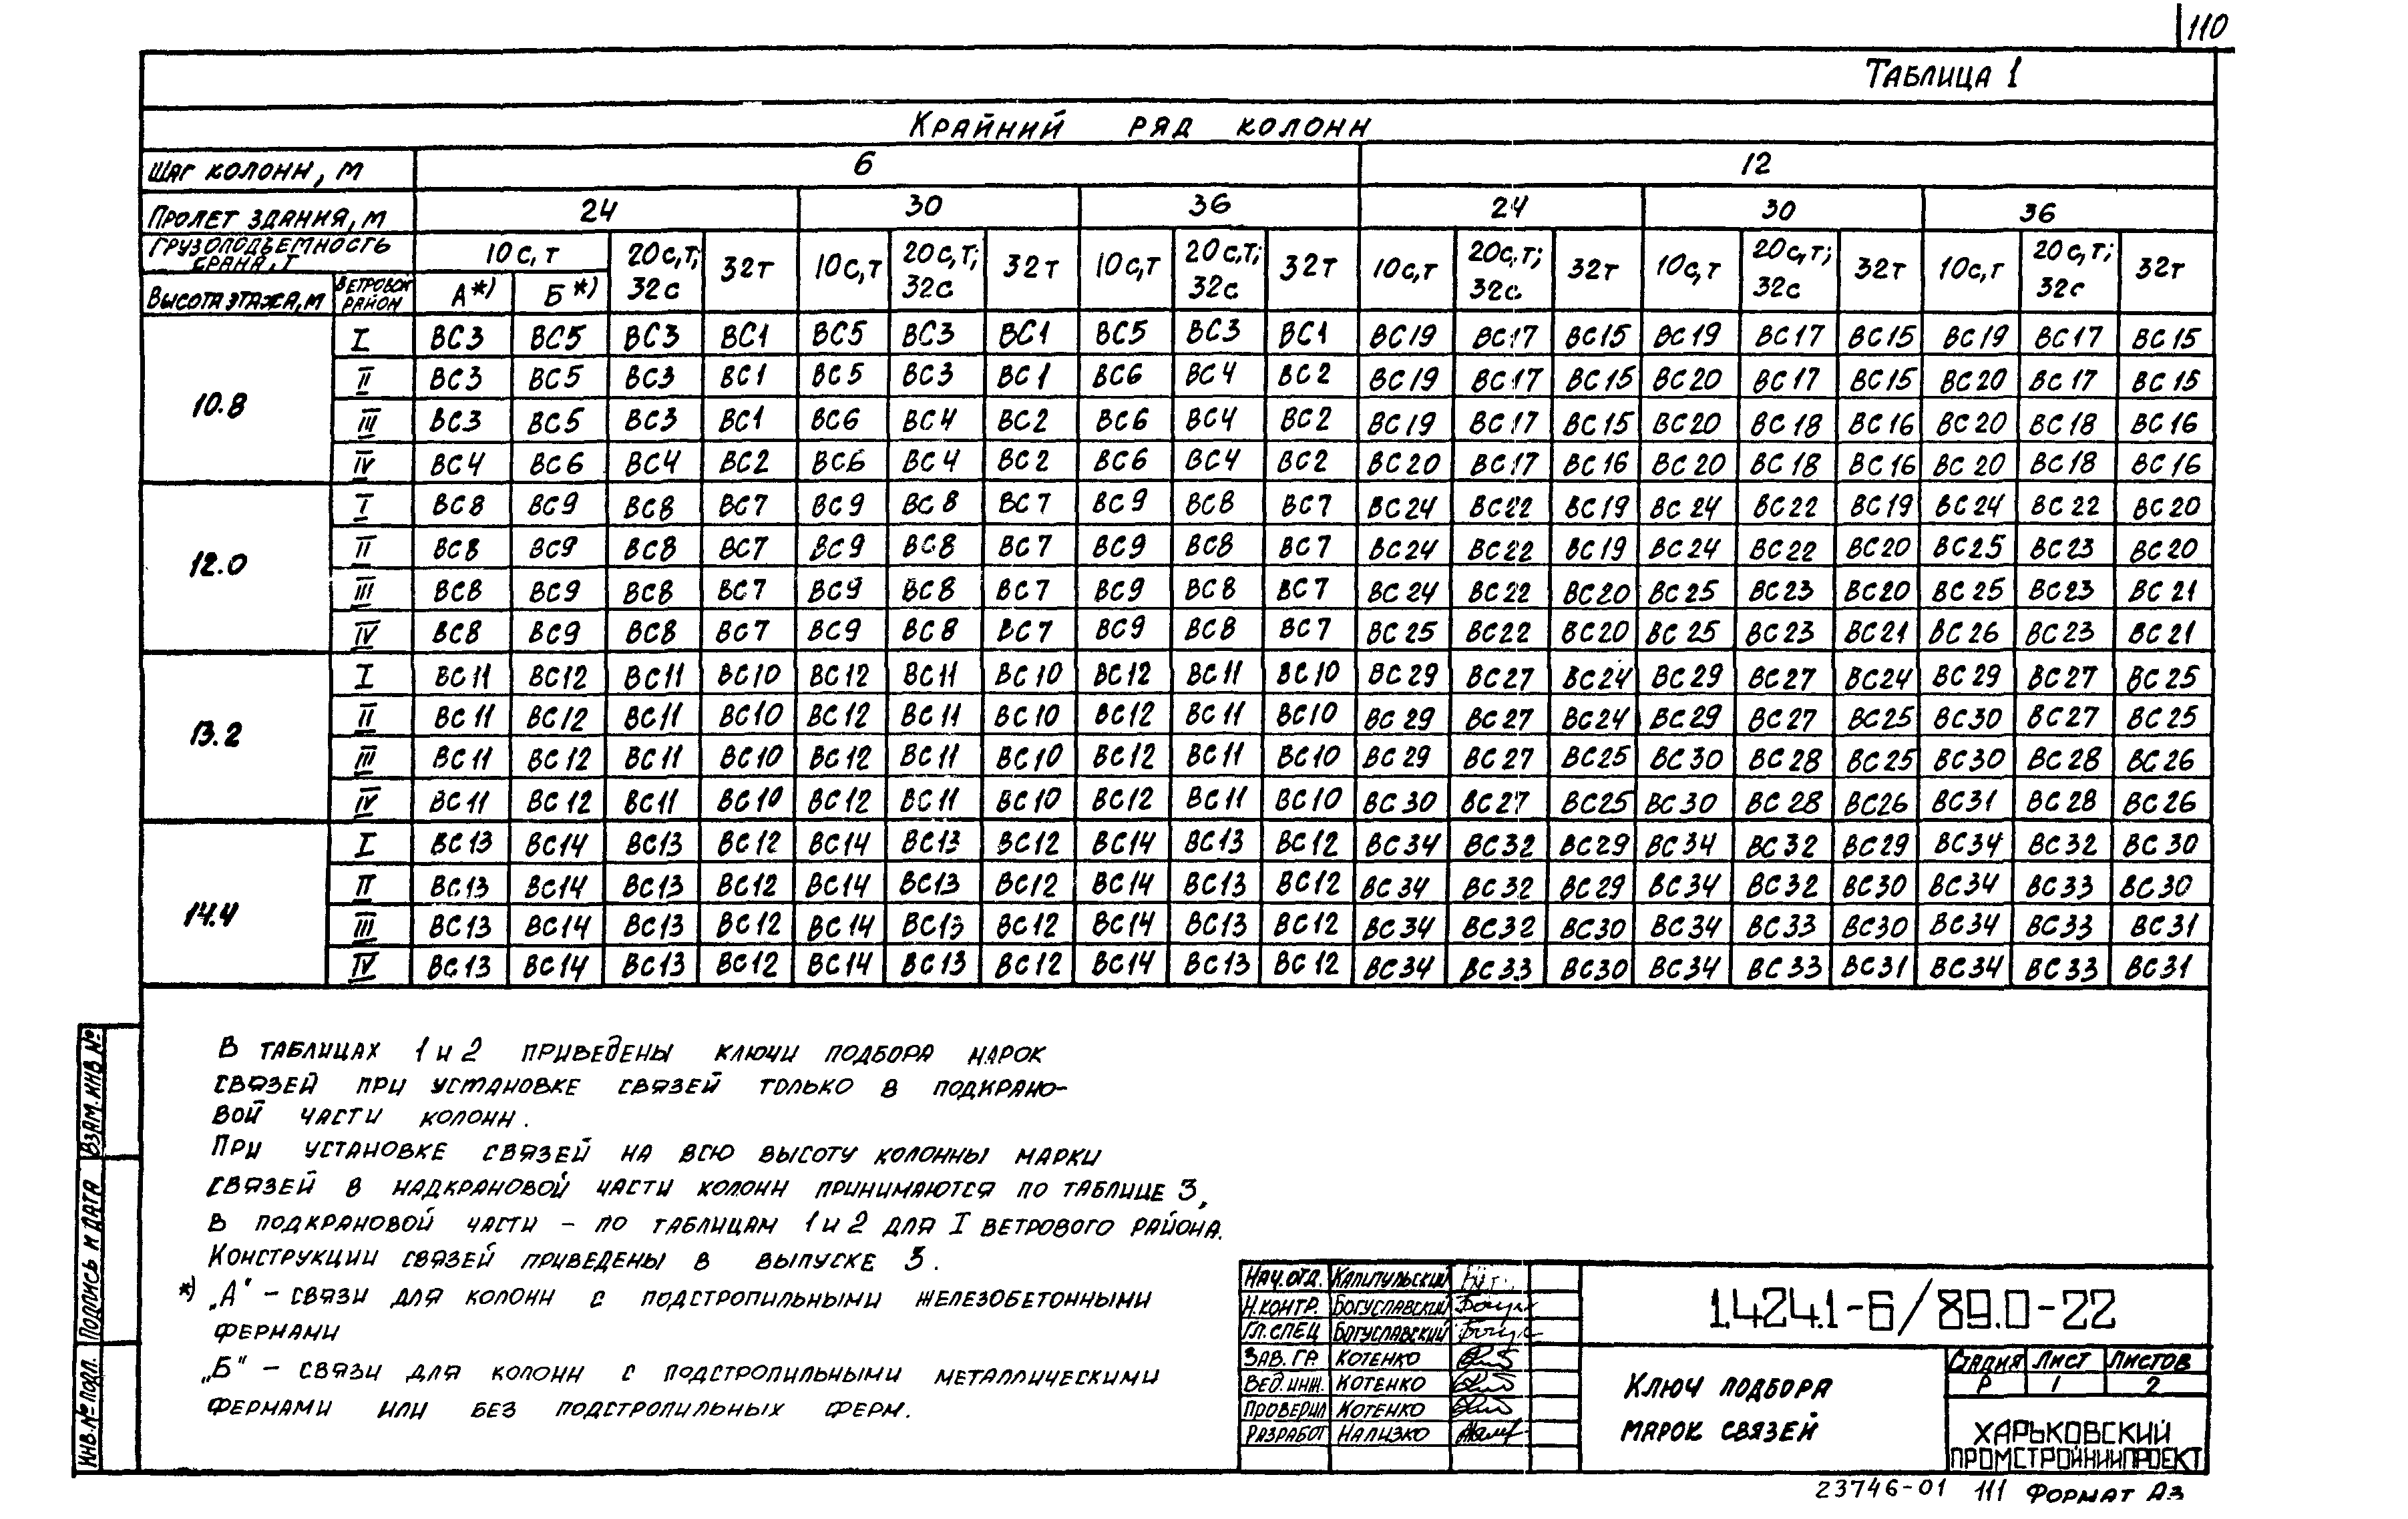 110
Таблица 1
Крайний ряд колонн
Шаг колонн, м 6 12
Пролет здания, м 24 30 36 24 30 36
Грузоподъемность крана, т 10с,т 20с,т; 32с 32т 10с,т 20с,т; 32с 32т 10с,т 20с,т; 32с 32т 10с,т 20с,т; 32с 32т 10с,т 20с,т; 32с 32т 10с,т 20с,т; 32с 32т
Высота этажа, м Ветровой район А*) Б*)
10.8 I ВС3 ВС5 ВС3 ВС1 ВС5 ВС3 ВС1 ВС5 ВС3 ВС1 ВС19 ВС17 ВС15 ВС19 ВС17 ВС15 ВС19 ВС17 ВС15
II ВС3 ВС5 ВС3 ВС1 ВС5 ВС3 ВС1 ВС6 ВС4 ВС2 ВС19 ВС17 ВС15 ВС20 ВС17 ВС15 ВС20 ВС17 ВС15
III ВС3 ВС5 ВС3 ВС1 ВС6 ВС4 ВС2 ВС6 ВС4 ВС2 ВС19 ВС17 ВС15 ВС20 ВС18 ВС16 ВС20 ВС18 ВС16
IV ВС4 ВС6 ВС4 ВС2 ВС6 ВС4 ВС2 ВС6 ВС4 ВС2 ВС20 ВС17 ВС16 ВС20 ВС18 ВС16 ВС20 ВС18 ВС16
12.0 I ВС8 ВС9 ВС8 ВС7 ВС9 ВС8 ВС7 ВС9 ВС8 ВС7 ВС24 ВС22 ВС19 ВС24 ВС22 ВС19 ВС24 ВС22 ВС20
II ВС8 ВС9 ВС8 ВС7 ВС9 ВС8 ВС7 ВС9 ВС8 ВС7 ВС24 ВС22 ВС19 ВС24 ВС22 ВС20 ВС25 ВС23 ВС20
III ВС8 ВС9 ВС8 ВС7 ВС9 ВС8 ВС7 ВС9 ВС8 ВС7 ВС24 ВС22 ВС20 ВС25 ВС23 ВС20 ВС25 ВС23 ВС21
IV ВС8 ВС9 ВС8 ВС7 ВС9 ВС8 ВС7 ВС9 ВС8 ВС7 ВС25 ВС22 ВС20 ВС25 ВС23 ВС21 ВС26 ВС23 ВС21
13.2 I ВС11 ВС12 ВС11 ВС10 ВС12 ВС11 ВС10 ВС12 ВС11 ВС10 ВС29 ВС27 ВС24 ВС29 ВС27 ВС24 ВС29 ВС27 ВС25
II ВС11 ВС12 ВС11 ВС10 ВС12 ВС11 ВС10 ВС12 ВС11 ВС10 ВС29 ВС27 ВС24 ВС29 ВС27 ВС25 ВС30 ВС27 ВС25
III ВС11 ВС12 ВС11 ВС10 ВС12 ВС11 ВС10 ВС12 ВС11 ВС10 ВС29 ВС27 ВС25 ВС30 ВС28 ВС25 ВС30 ВС28 ВС26
IV ВС11 ВС12 ВС11 ВС10 ВС12 ВС11 ВС10 ВС12 ВС11 ВС10 ВС30 ВС27 ВС25 ВС30 ВС28 ВС26 ВС31 ВС28 ВС26
14.4 I ВС13 ВС14 ВС13 ВС12 ВС14 ВС13 ВС12 ВС14 ВС13 ВС12 ВС34 ВС32 ВС29 ВС34 ВС32 ВС29 ВС34 ВС32 ВС30
II ВС13 ВС14 ВС13 ВС12 ВС14 ВС13 ВС12 ВС14 ВС13 ВС12 ВС34 ВС32 ВС29 ВС34 ВС32 ВС30 ВС34 ВС33 ВС30
III ВС13 ВС14 ВС13 ВС12 ВС14 ВС13 ВС12 ВС14 ВС13 ВС12 ВС34 ВС32 ВС30 ВС34 ВС33 ВС30 ВС34 ВС33 ВС31
IV ВС13 ВС14 ВС13 ВС12 ВС14 ВС13 ВС12 ВС14 ВС13 ВС12 ВС34 ВС33 ВС30 ВС34 ВС33 ВС31 ВС34 ВС33 ВС31
В таблицах 1 и 2 приведены ключи подбора марок
связей при установке связей только в подкрано-
вой части колонн.
При установке связей на всю высоту колонны марки
связей в надкрановой части колонн принимаются по таблице 3,
в подкрановой части – по таблицам 1 и 2 для I ветрового района.
Конструкции связей приведены в выпуске 3.
*) „А" – связи для колонн с подстропильными железобетонными
фермами
„Б" – связи для колонн с подстропильными металлическими
фермами или без подстропильных ферм.
Взам. инв №
Подпись и дата
Инв. № подл.
Нач. отд. Капитульский
Н. контр. Богуславский
Гл. спец Богуславский
Зав. гр. Котенко
Вед. инж. Котенко
Проверил Котенко
Разработ Нализко
1.424.1-6/89.0-22
Ключ подбора
марок связей
Стадия Лист Листов
Р 1 2
Харьковский
ПромстройНИИпроект
23746-01 111 Формат А3